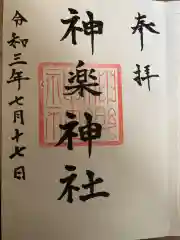 奉拝
神楽神社
令和三年七月十七日